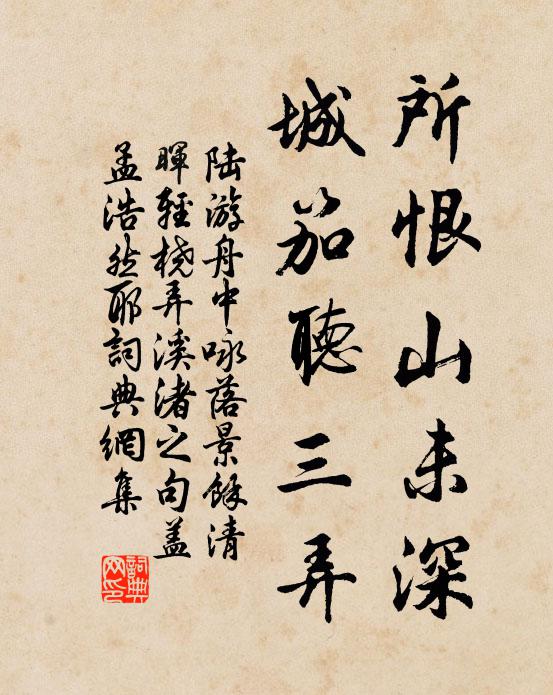 所恨山未深
城笳聽三弄
陆游舟中咏落景餘清
暉輕橈弄溪渚之句盖
孟浩然耶詞典網集
詞典网印